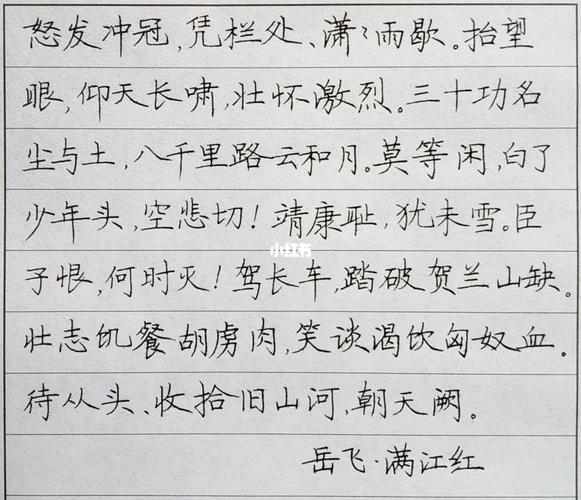 怒发冲冠,凭栏处、潇〻雨歇。抬望
眼,仰天长啸,壮怀激烈。三十功名
尘与土,八千里路云和月。莫等闲,白了
少年头,空悲切!靖康耻,犹未雪。臣
小红书
子恨,何时灭!驾长车,踏破贺兰山缺。
壮志饥餐胡虏肉,笑谈渴饮匈奴血。
待从头、收拾旧山河,朝天阙。
岳飞·满江红